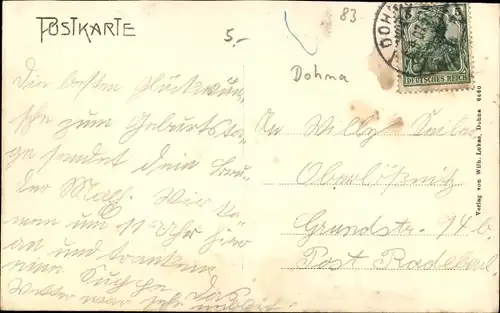 POSTKARTE
5.-
83
Dohma
DOHNA
5 5
DEUTSCHES REICH
Die besten Glückwün-
sche zum Geburtsta-
ge sendet dein Bru-
der Wir ka-
men um 11 Uhr hier
an und tranken
eine Das
Wetter war sehr
An Willy
Oberlößnitz
Grundstr. 94 b.
Post Radebeul
Verlag von Wilh. Lukas, Dohna 6460